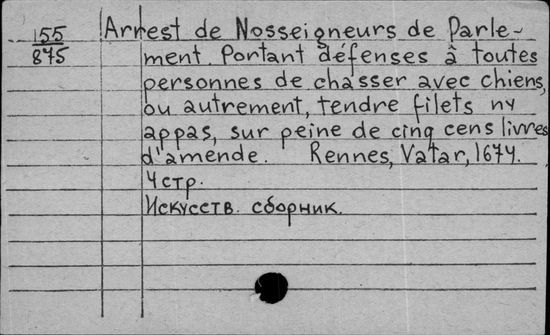 155
875
Arrest de Nosseigneurs de Parle-
ment. Portant défenses à toutes
personnes de chasser avec chiens,
ou autrement, tendre filets ny
appas, sur peine de cinq cens livres
d'amende. Rennes, Vatar, 1674.
4 стр.
Искусств. сборник.